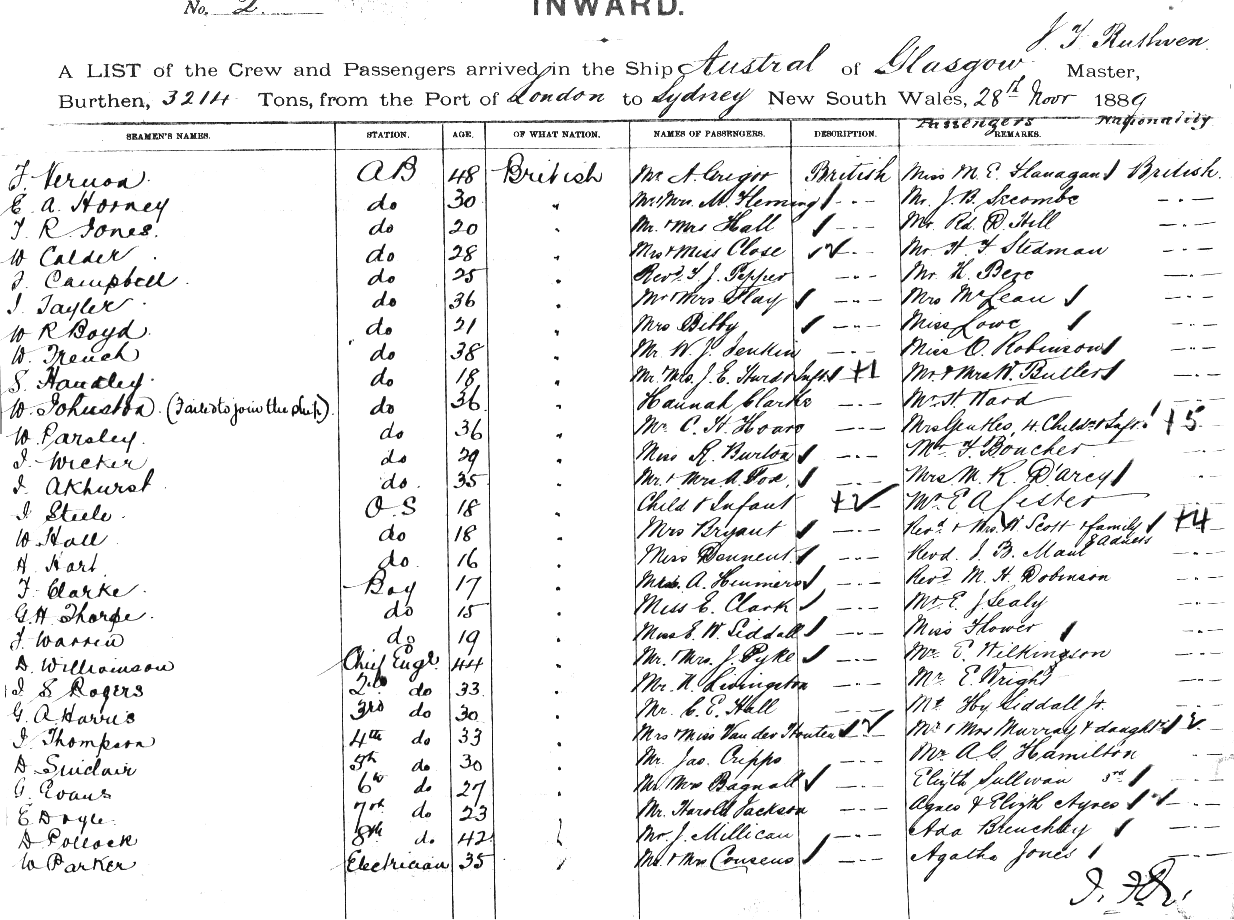 No. 2 INWARD.
J F Ruthven
A LIST of the Crew and Passengers arrived in the Ship Austral of Glasgow Master,
Burthen, 3214 Tons, from the Port of London to Sydney New South Wales, 28th Novr 1889
Passengers Nationality
SEAMEN'S NAMES. STATION. AGE. OF WHAT NATION. NAMES OF PASSENGERS. DESCRIPTION. REMARKS.
F. Vernon. AB 48 British Mr A. Gregor British Miss M. E. Flanagan British.
E. A. Horney do 30 " Mr & Mrs. M. Fleming - " - Mr. J. B. Secombe - " -
T. R Jones. do 20 " Mr. & Mrs Hall - " - Mr. Rd. D. Hill - " -
W Calder do 28 " Mrs & Miss Close - " - Mr H. F Stedman - " -
J. Campbell do 25 " Revd. F. J. Pepper - " - Mr H. Bere - " -
J. Tayler do 36 " Mr & Mrs Hay - " - Mrs McLean - " -
W R Boyd. do 21 " Mrs Bibby - " - Miss Lowe - " -
W. French do 38 " Mr. W. J. Jenkin - " - Miss O. Robinson - " -
S. Handley. do 18 " Mr. Mrs. J. E. Hurd & Inft. +1 Mr. & Mrs W. Butler - " -
W. Johnston. (Failed to join the ship). do 36 " Hannah Clarke - " - Mr H Ward - " -
W Parsley. do 36 " Mr. C. H. Hoare - " - Mrs Gentles, 4 Childn & Inft. +5
J. Wicker do 29 " Miss R. Burton - " - Mr. F. Boucher - " -
J. Akhurst do. 35 " Mr. & Mrs. A. Fox, - " - Mrs M. R. D'arcy - " -
J Steele. O. S 18 " Child & Infant +2 Mr. E. A Lester - " -
W. Hall do 18 " Mrs Bryant - " - Revd. & Mrs. W Scott & family +4
H. Hart do 16 " Miss Dennent. - " - Revd. J. B. Maul - " -
F. Clarke. Boy 17 " A. Hinmers - " - Revd. M. H. Dobinson - " -
G. H. Thorpe. do 15 " Miss E. Clark - " - Mr. E. J Sealy - " -
J. Warren do 19 " Miss E. W. Siddall - " - Miss Flower - " -
D. Williamson Chief Engr. 44 " Mr. & Mrs. J. Pyke - " - Mr. E. Wilkingson - " -
J. S Rogers 2nd do 33. " Mr. H. Livingston - " - Mr E. Wright - " -
G. A Harris 3rd do 30 " Mr. C. E. Hall - " - Mr. Hy Siddall Jr. - " -
J. Thompson 4th do 33 " Mrs & Miss Van der Houten Mr & Mrs Murray & daughter 2 - " -
D. Sinclair 5th do 30 " Mr. Jas. Cripps - " - Mr. A. G. Hamilton - " -
G. Evans 6th do 27 " Mr. Mrs Bagnall - " - Elizth Sullivan - " -
E. Doyle. 7th do 23 Mr. Harold Jackson - " - Agnes & Elizth Aynes - " -
D Pollock 8th do. 42 Mr. J. Millican - " - Ada Brenchley - " -
W Parker Electrician 35 Mr. & Mrs Cousens - " - Agatha Jones - " -
J. F. R.